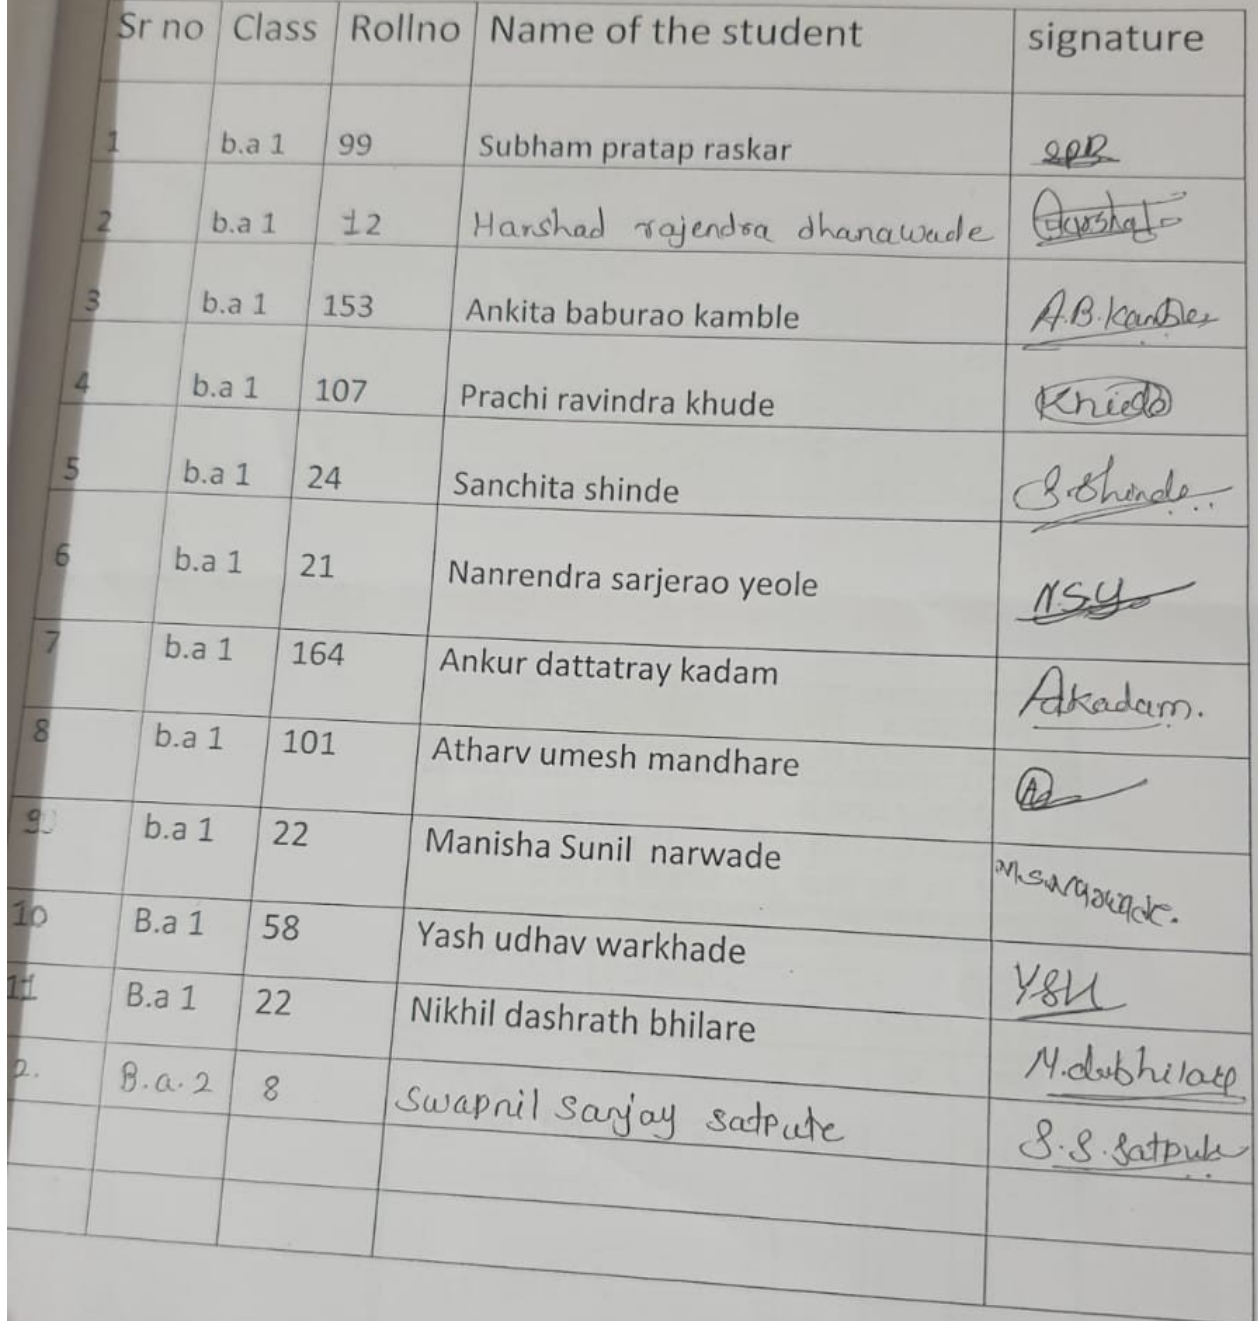 Sr no Class Rollno Name of the student signature
1 b.a 1 99 Subham pratap raskar SPR
2 b.a 1 12 Harshad rajendra dhanawade
3 b.a 1 153 Ankita baburao kamble A.B.Kamble
4 b.a 1 107 Prachi ravindra khude
5 b.a 1 24 Sanchita shinde S.Shinde
6 b.a 1 21 Nanrendra sarjerao yeole N.S.Y.
7 b.a 1 164 Ankur dattatray kadam Akadam.
8 b.a 1 101 Atharv umesh mandhare
9 b.a 1 22 Manisha Sunil narwade
10 B.a 1 58 Yash udhav warkhade
11 B.a 1 22 Nikhil dashrath bhilare
2. B.a.2 8 Swapnil Sanjay satpute S.S.Satpute